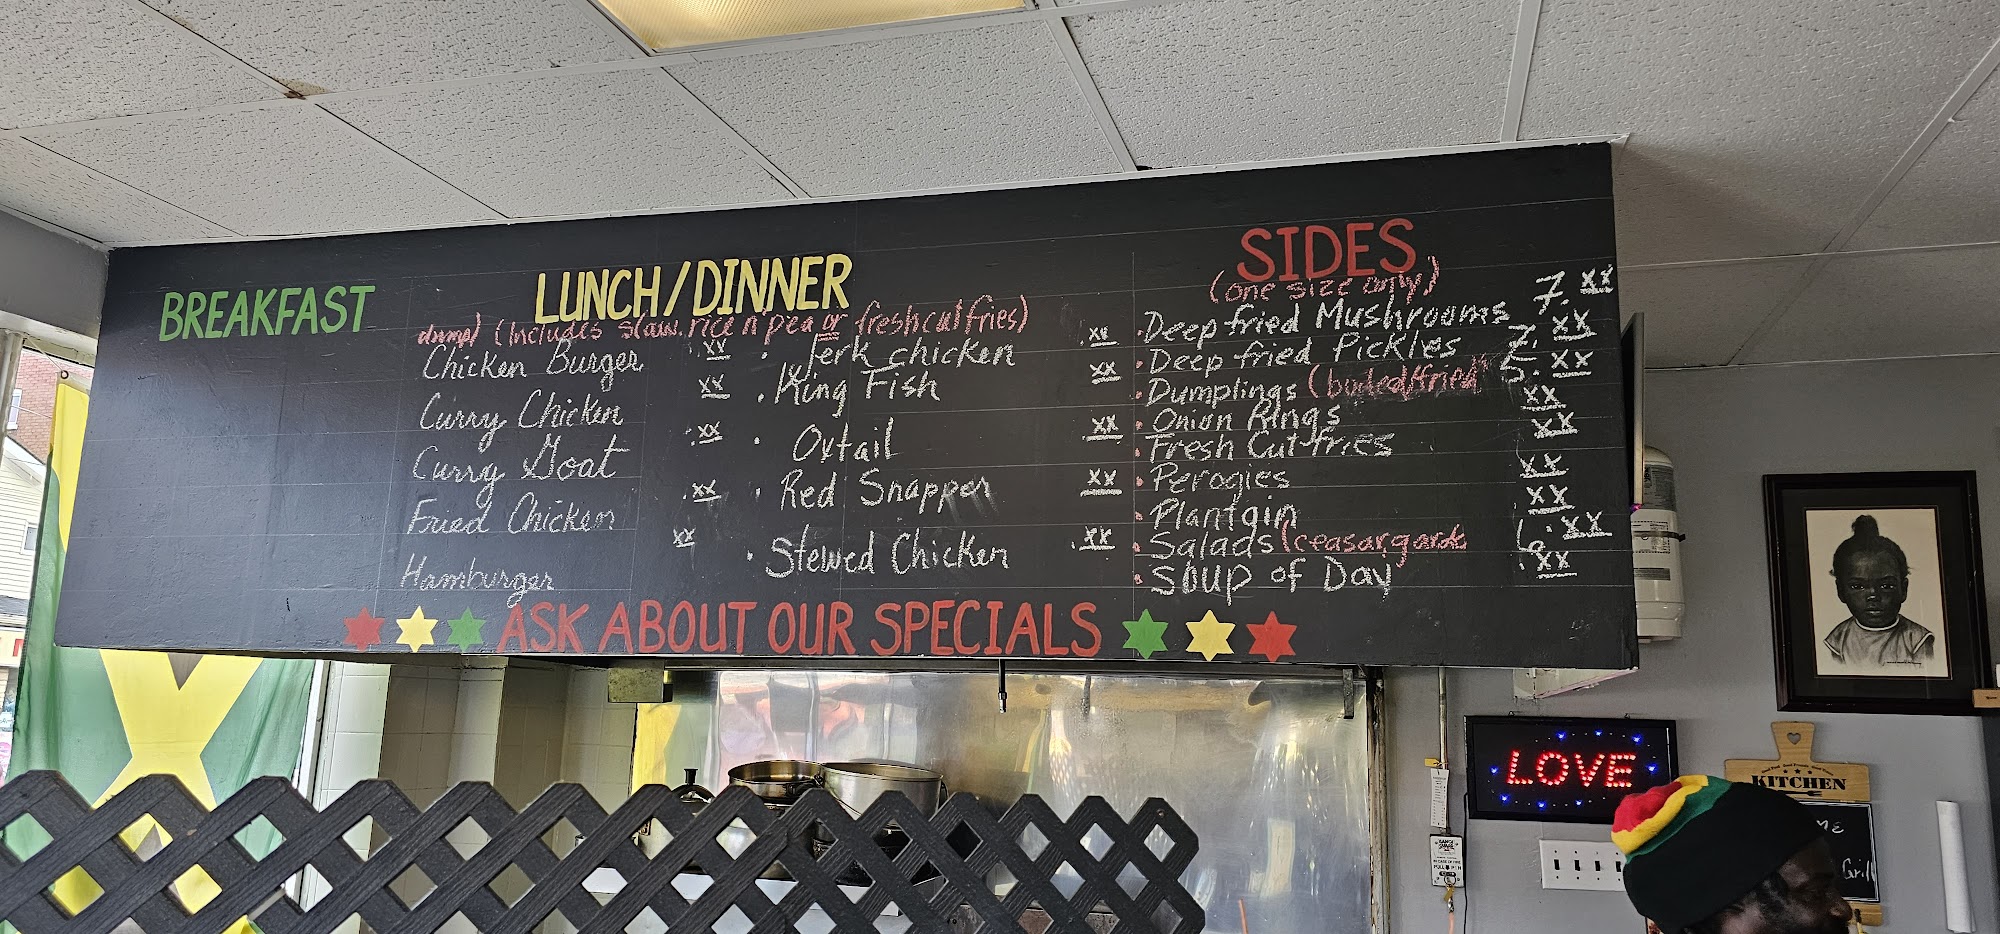 BREAKFAST
LUNCH/DINNER
(Includes slaw. rice n' pea or fresh cut fries)
Chicken Burger xx
Curry Chicken xx
Curry Goat xx
Fried Chicken xx
Hamburger xx
· Jerk chicken xx
· King Fish xx
· Oxtail xx
· Red Snapper xx
· Stewed Chicken xx
SIDES
(one size only)
· Deep fried Mushrooms 7.xx
· Deep fried Pickles 7.xx
· Dumplings (boiled/fried) 5.xx
· Onion Rings xx
· Fresh Cut fries xx
· Perogies xx
· Plantain xx
· Salads (ceasar, garde 6.xx
· Soup of Day xx
ASK ABOUT OUR SPECIALS
LOVE
KITCHEN
Grill